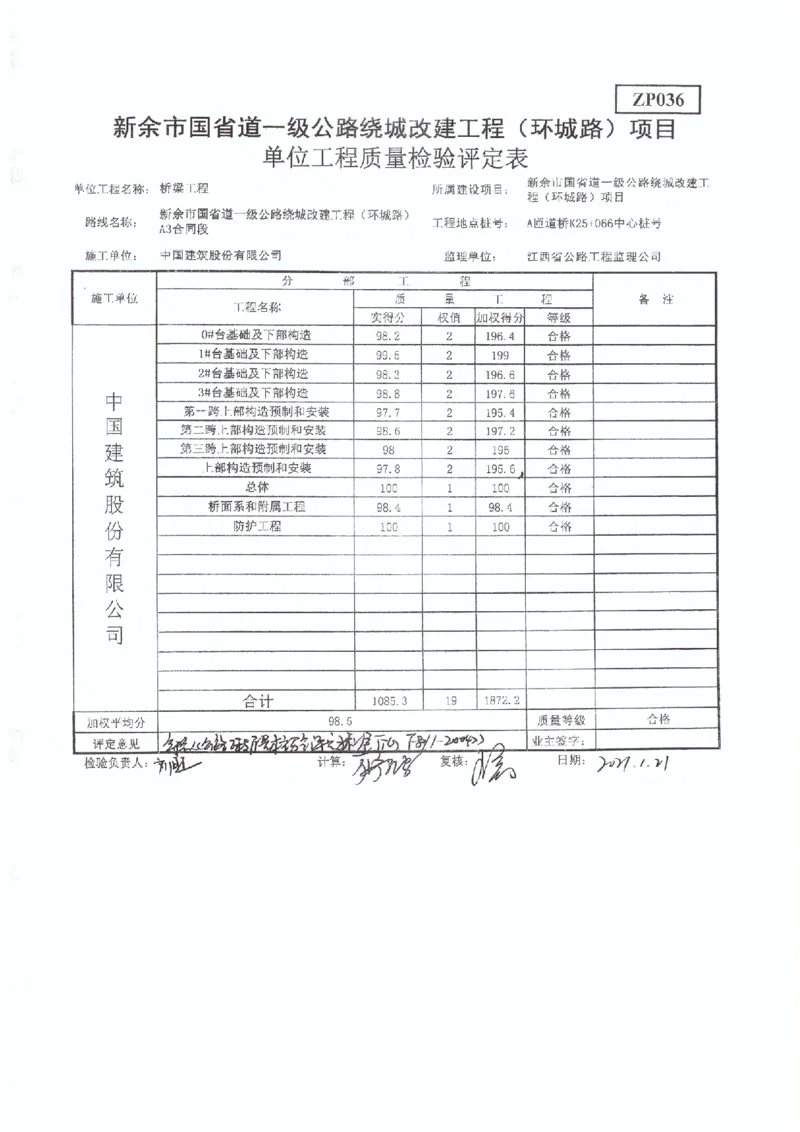 ZP036
新余市国省道一级公路绕城改建工程（环城路）项目
单位工程质量检验评定表
单位工程名称： 桥梁工程 所属建设项目： 新余市国省道一级公路绕城改建工
程（环城路）项目
路线名称： 新余市国省道一级公路绕城改建工程（环城路）
A3合同段 工程地点桩号： A匝道桥K25+066中心桩号
施工单位： 中国建筑股份有限公司 监理单位： 江西省公路工程监理公司
施工单位 分部工程 备注
工程名称 质量工程
实得分 权值 加权得分 等级
中国建筑股份有限公司
0#台基础及下部构造 98.2 2 196.4 合格
1#台基础及下部构造 99.5 2 199 合格
2#台基础及下部构造 98.3 2 196.6 合格
3#台基础及下部构造 98.8 2 197.6 合格
第一跨上部构造预制和安装 97.7 2 195.4 合格
第二跨上部构造预制和安装 98.6 2 197.2 合格
第三跨上部构造预制和安装 98 2 196 合格
上部构造预制和安装 97.8 2 195.6 合格
总体 100 1 100 合格
桥面系和附属工程 98.4 1 98.4 合格
防护工程 100 1 100 合格
合计 1085.3 19 1872.2
加权平均分 98.5 质量等级 合格
评定意见 业主签字：
检验负责人： 计算： 复核： 日期： 2021.1.21